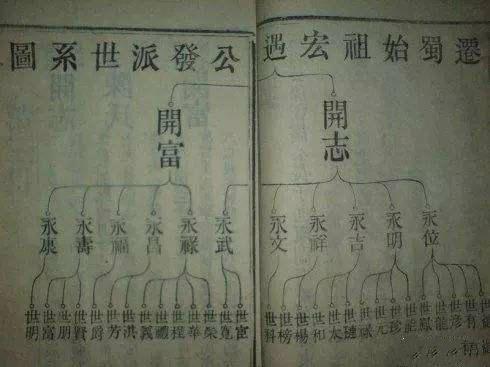 遷蜀始祖宏遇公發派世系圖
開志 開富
永位 永明 永吉 永祥 永文 永武 永祿 永昌 永福 永壽 永康
世有 世彥 世龍 世鳳 世能 世珍 世元 世祿 世璉 世太 世和 世楊 世榜 世科 世宦 世寬 世榮 世華 世程 世禮 世義 世洪 世芳 世爵 世賢 世朋 世富 世明